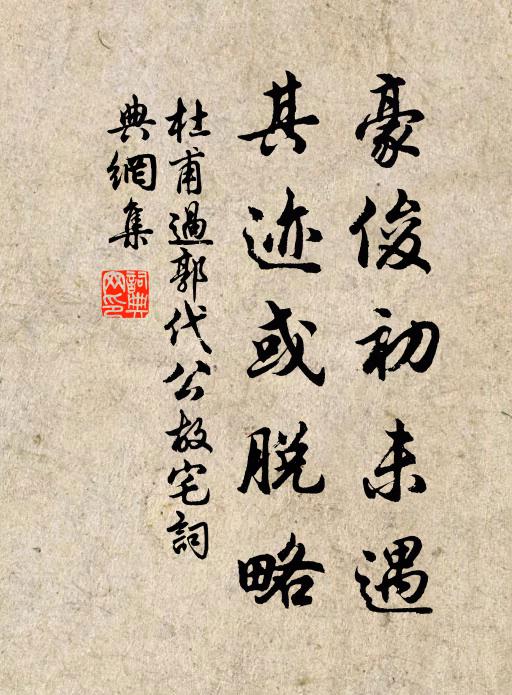 豪俊初未遇
其迹或脱略
杜甫過郭代公故宅詞
典網集
詞典网印